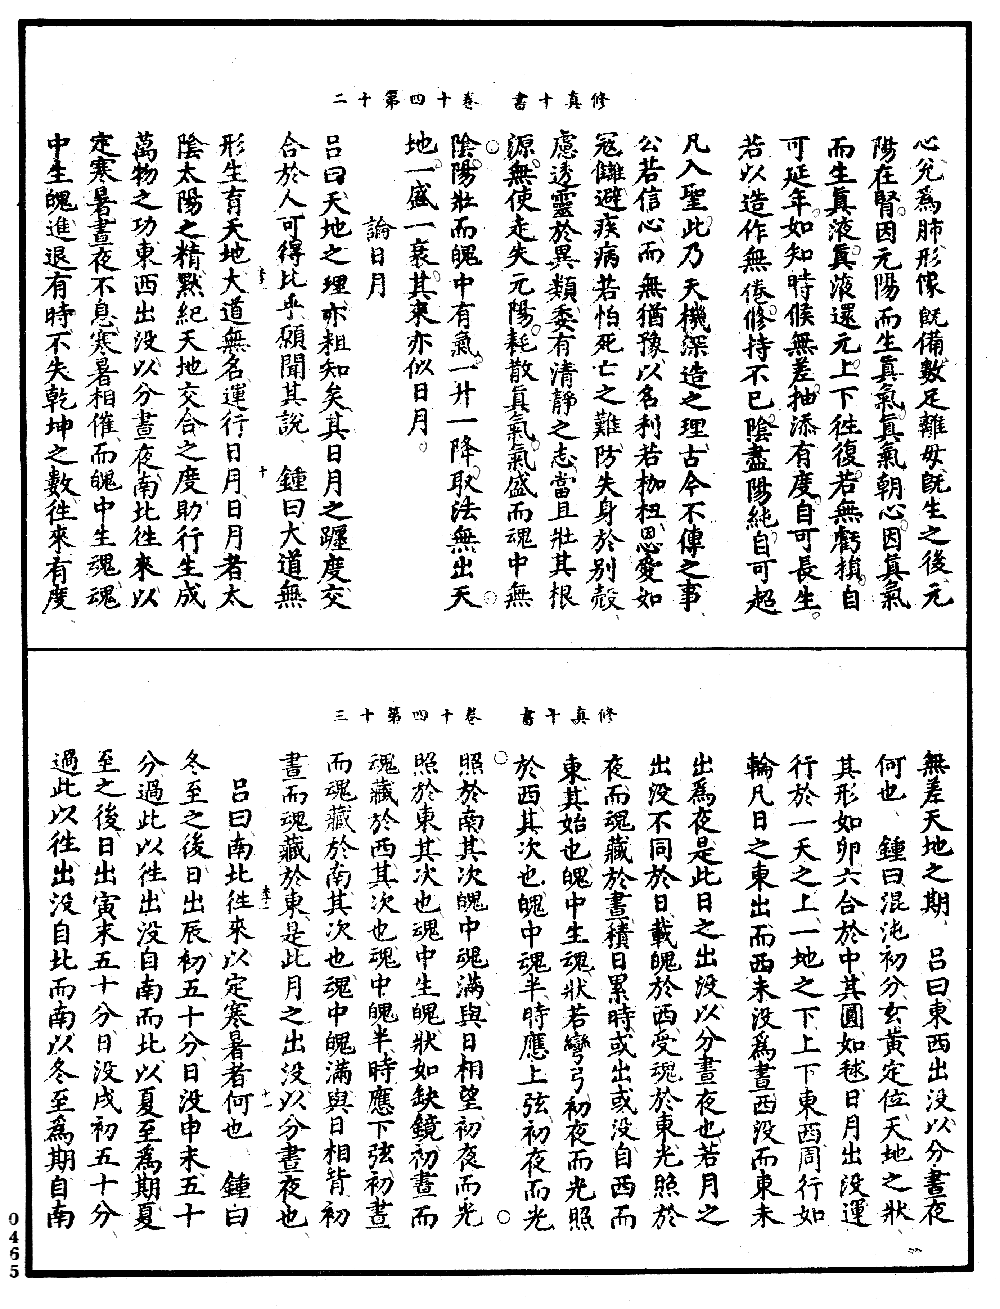 修真十書　卷十四第十二
心兊爲肺形像旣備數足離母旣生之後元
陽在腎因元陽而生眞氣眞氣朝心因眞氣
而生眞液眞液還元上下徃復若無虧損自
可延年如知時候無差抽添有度自可長生
若以造作無倦修持不已陰盡陽純自可超
凡入聖此乃天機深造之理古今不傳之事
公若信心而無猶豫以名利若枷杻恩愛如
冦讎避疾病若怕死亡之難防失身於別殼
慮透靈於異類委有清靜之志當且壯其根
源無使走失元陽耗散眞氣氣盛而魂中無
陰陽壯而魄中有氣一升一降取法無出天
地一盛一衰其來亦似日月。
論日月
呂曰天地之理亦粗知矣其日月之躔度交
合於人可得比乎願聞其說　鍾曰大道無
形生育天地大道無名運行日月日月者太
陰太陽之精黙紀天地交合之度助行生成
萬物之功東西出没以分晝夜南北徃來以
定寒暑晝夜不息寒暑相催而魄中生魂魂
中生魄進退有時不失乾坤之數徃來有度
修真十書　卷十四第十三
無差天地之期　呂曰東西出没以分晝夜
何也　鍾曰混沌初分玄黃定位天地之狀
其形如卵六合於中其圓如毬日月出没運
行於一天之上一地之下上下東西周行如
輪凡日之東出而西未没爲晝西没而東未
出爲夜是此日之出没以分晝夜也若月之
出没不同於日載魄於西受魂於東光照於
夜而魂藏於晝積日累時或出或没自西而
東其始也魄中生魂狀若彎弓初夜而光照
於西其次也魄中魂半時應上弦初夜而光
照於南其次魄中魂滿與日相望初夜而光
照於東其次也魂中生魄狀如缺鏡初晝而
魂藏於西其次也魂中魄半時應下弦初晝
而魂藏於南其次也魂中魄滿與日相背初
晝而魂藏於東是此月之出没以分晝夜也
呂曰南北徃來以定寒暑者何也　鍾曰
冬至之後日出辰初五十分日没申末五十
分過此以徃出没自南而北以夏至爲期夏
至之後日出寅末五十分日没戌初五十分
過此以徃出没自北而南以冬至爲期自南
0465